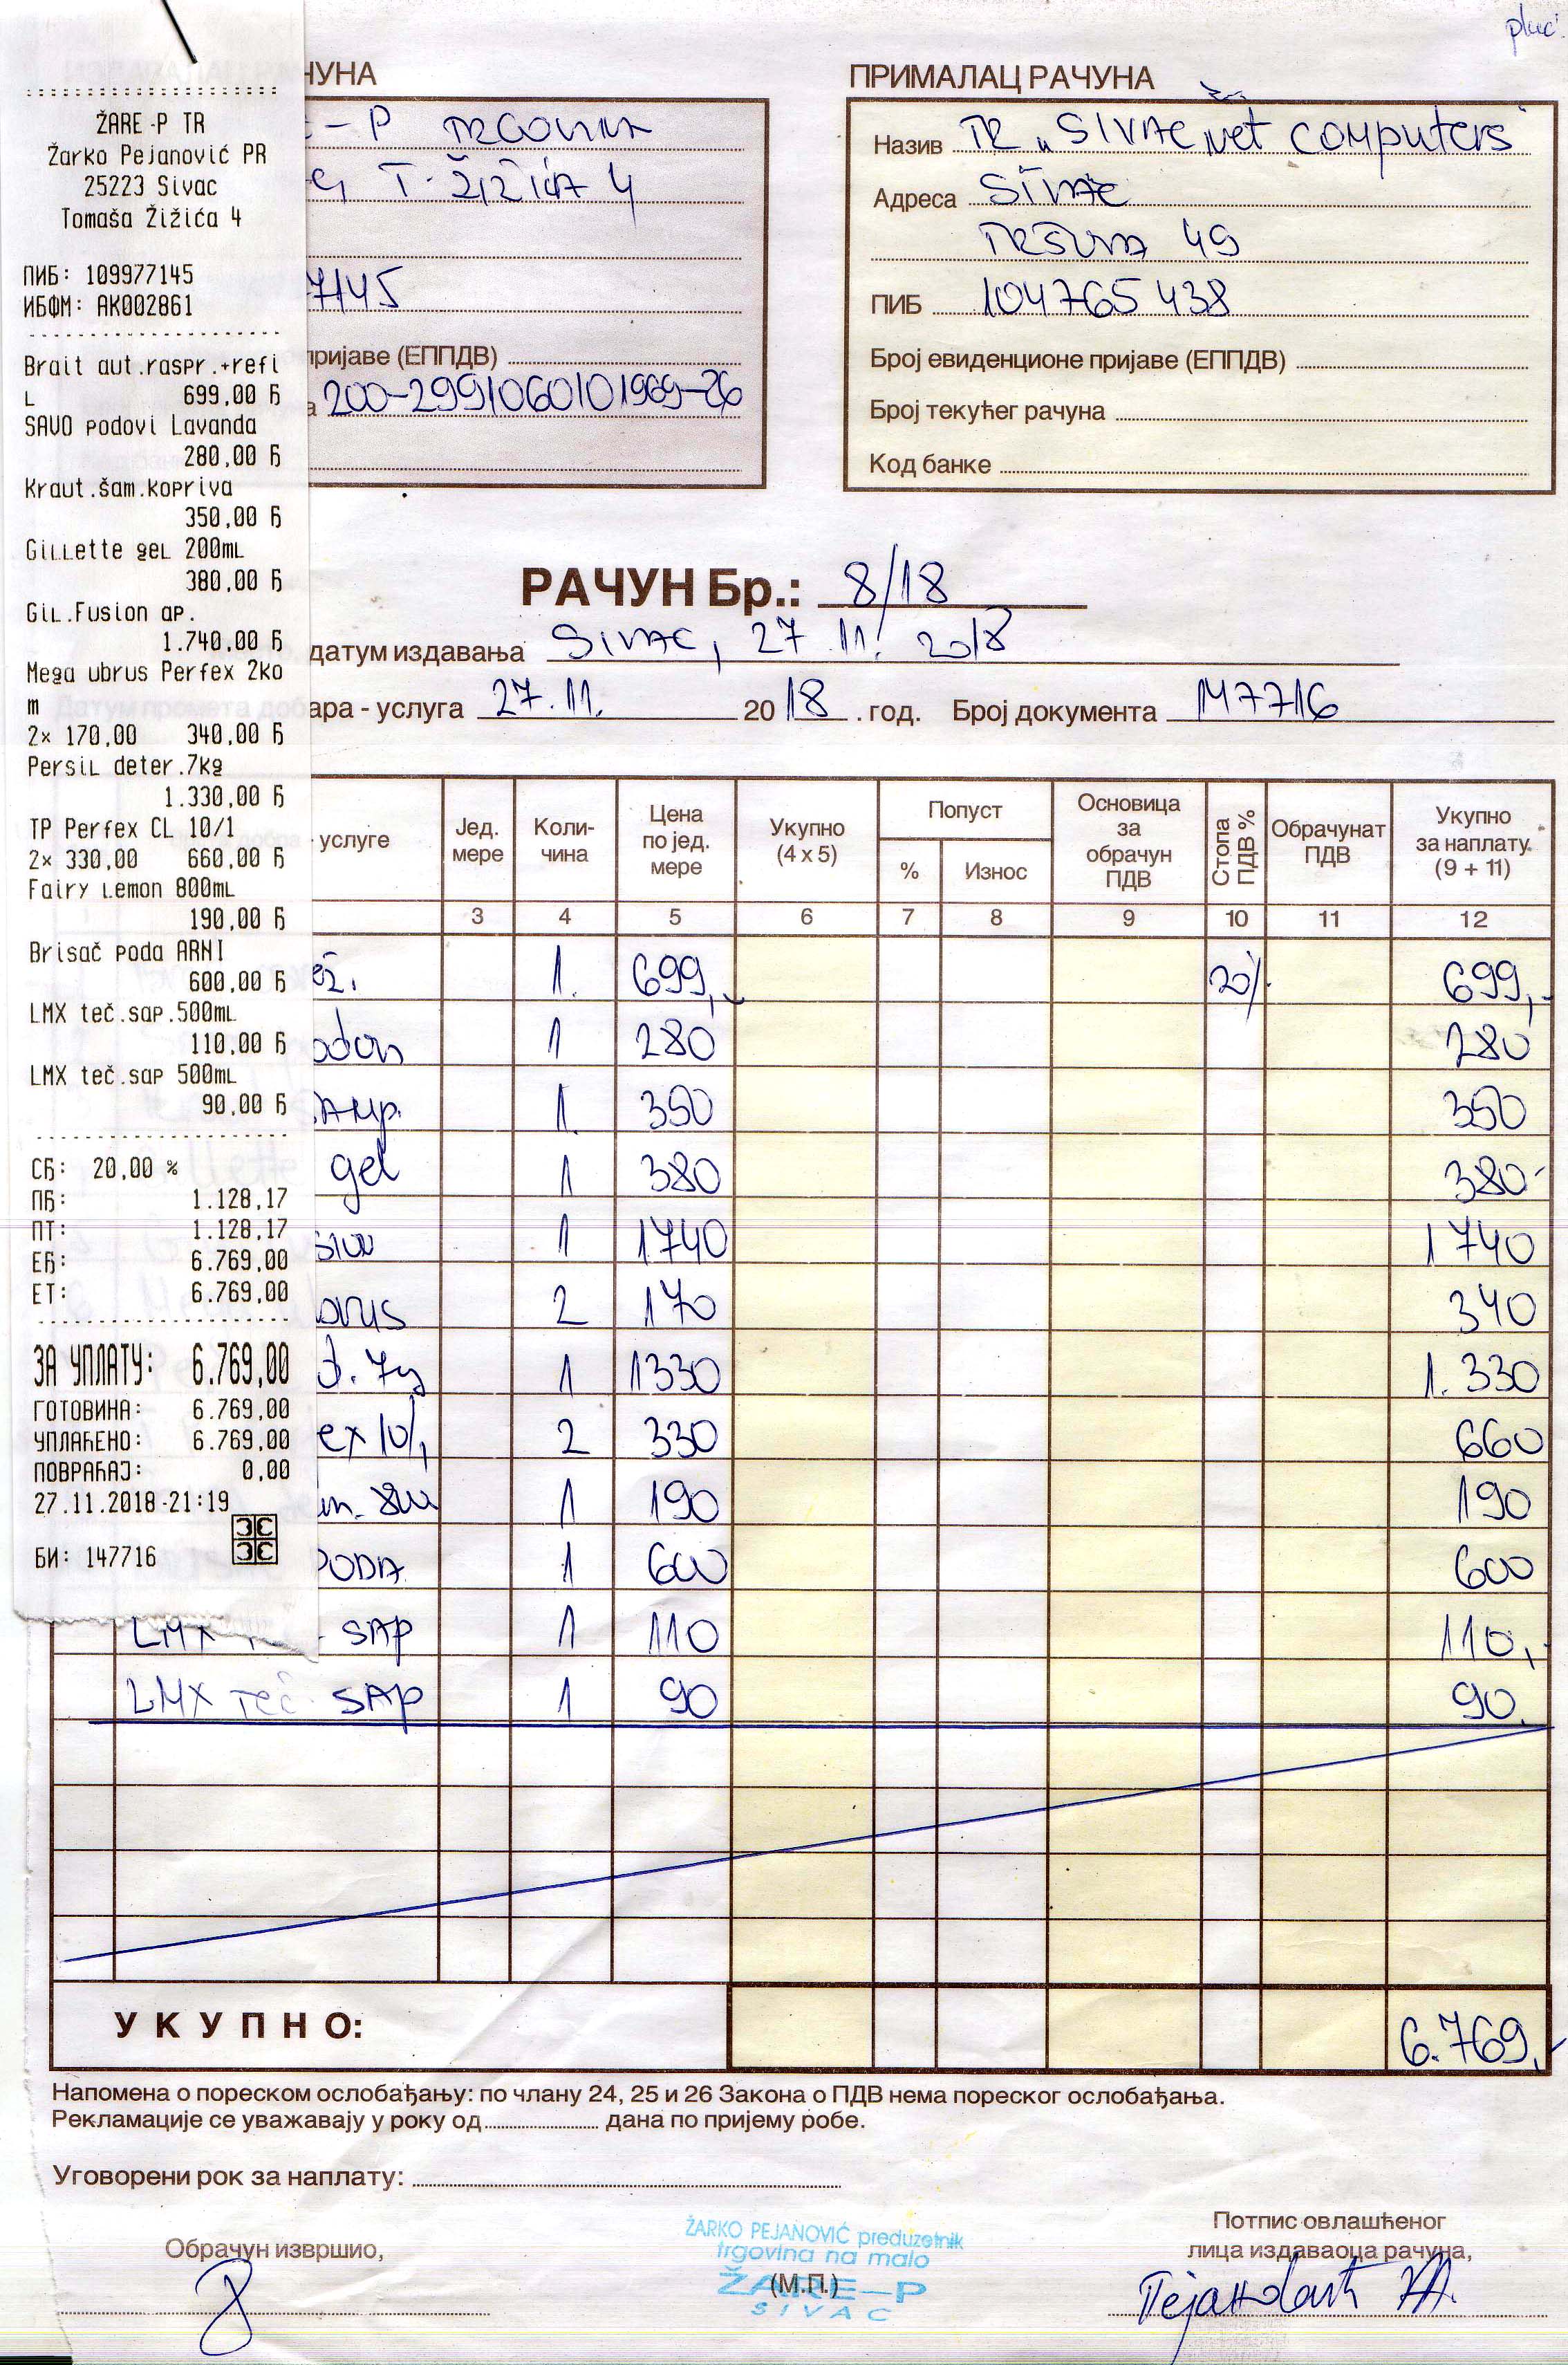 pluć.
ŽARE-P TR
Žarko Pejanović PR
25223 Sivac
Tomaša Žižića 4
ПИБ: 109977145
ИБФМ: AK002861
Brait aut.raspr.+refi
L 699,00 Ђ
SAVO podovi Lavanda
280,00 Ђ
Kraut.šam.kopriva
350,00 Ђ
Gillette gel 200mL
380,00 Ђ
Gil.Fusion ap.
1.740,00 Ђ
Mega ubrus Perfex 2ko
m
2x 170,00 340,00 Ђ
Persil deter.7kg
1.330,00 Ђ
TP Perfex CL 10/1
2x 330,00 660,00 Ђ
Fairy Lemon 800mL
190,00 Ђ
Brisač poda ARNI
600,00 Ђ
LMX teč.sap.500mL
110,00 Ђ
LMX teč.sap 500mL
90,00 Ђ
СЂ: 20,00 %
ПЂ: 1.128,17
ПТ: 1.128,17
ЕЂ: 6.769,00
ЕТ: 6.769,00
ЗА УПЛАТУ: 6.769,00
ГОТОВИНА: 6.769,00
УПЛАЋЕНО: 6.769,00
ПОВРАЋАЈ: 0,00
27.11.2018-21:19
БИ: 147716
ЧУНА
E-P TRGOVINA
T. ŽIŽIĆA 4
7145
пријаве (ЕППДВ)
200-2991060101969-26
ПРИМАЛАЦ РАЧУНА
Назив TR "SIVAC net computers"
Адреса SIVAC
TRŠĆNA 49
ПИБ 104765438
Број евиденционе пријаве (ЕППДВ)
Број текућег рачуна
Код банке
РАЧУН Бр.: 8/18
датум издавања SIVAC, 27.11.2018
ара - услуга 27.11. 2018. год. Број документа 147716
услуге Јед. мере Коли-чина Цена по јед. мере Укупно (4 x 5) Попуст % Износ Основица за обрачун ПДВ Стопа ПДВ % Обрачунат ПДВ Укупно за наплату (9 + 11)
3 4 5 6 7 8 9 10 11 12
1. 699,- 20% 699,-
1 280 280
ŠAMP. 1. 350 350
gel 1 380 380-
1 1740 1740
2 170 340
1 1330 1.330
ex 10/1 2 330 660
1 190 190
PODA 1 600 600
LMX SAP 1 110 110,-
LMX TEČ SAP 1 90 90.
УКУПНО: 6.769,-
Напомена о пореском ослобађању: по члану 24, 25 и 26 Закона о ПДВ нема пореског ослобађања.
Рекламације се уважавају у року од дана по пријему робе.
Уговорени рок за наплату:
Обрачун извршио,
ŽARKO PEJANOVIĆ preduzetnik
trgovina na malo
(М.П.)
ŽARE-P
SIVAC
Потпис овлашћеног
лица издаваоца рачуна,